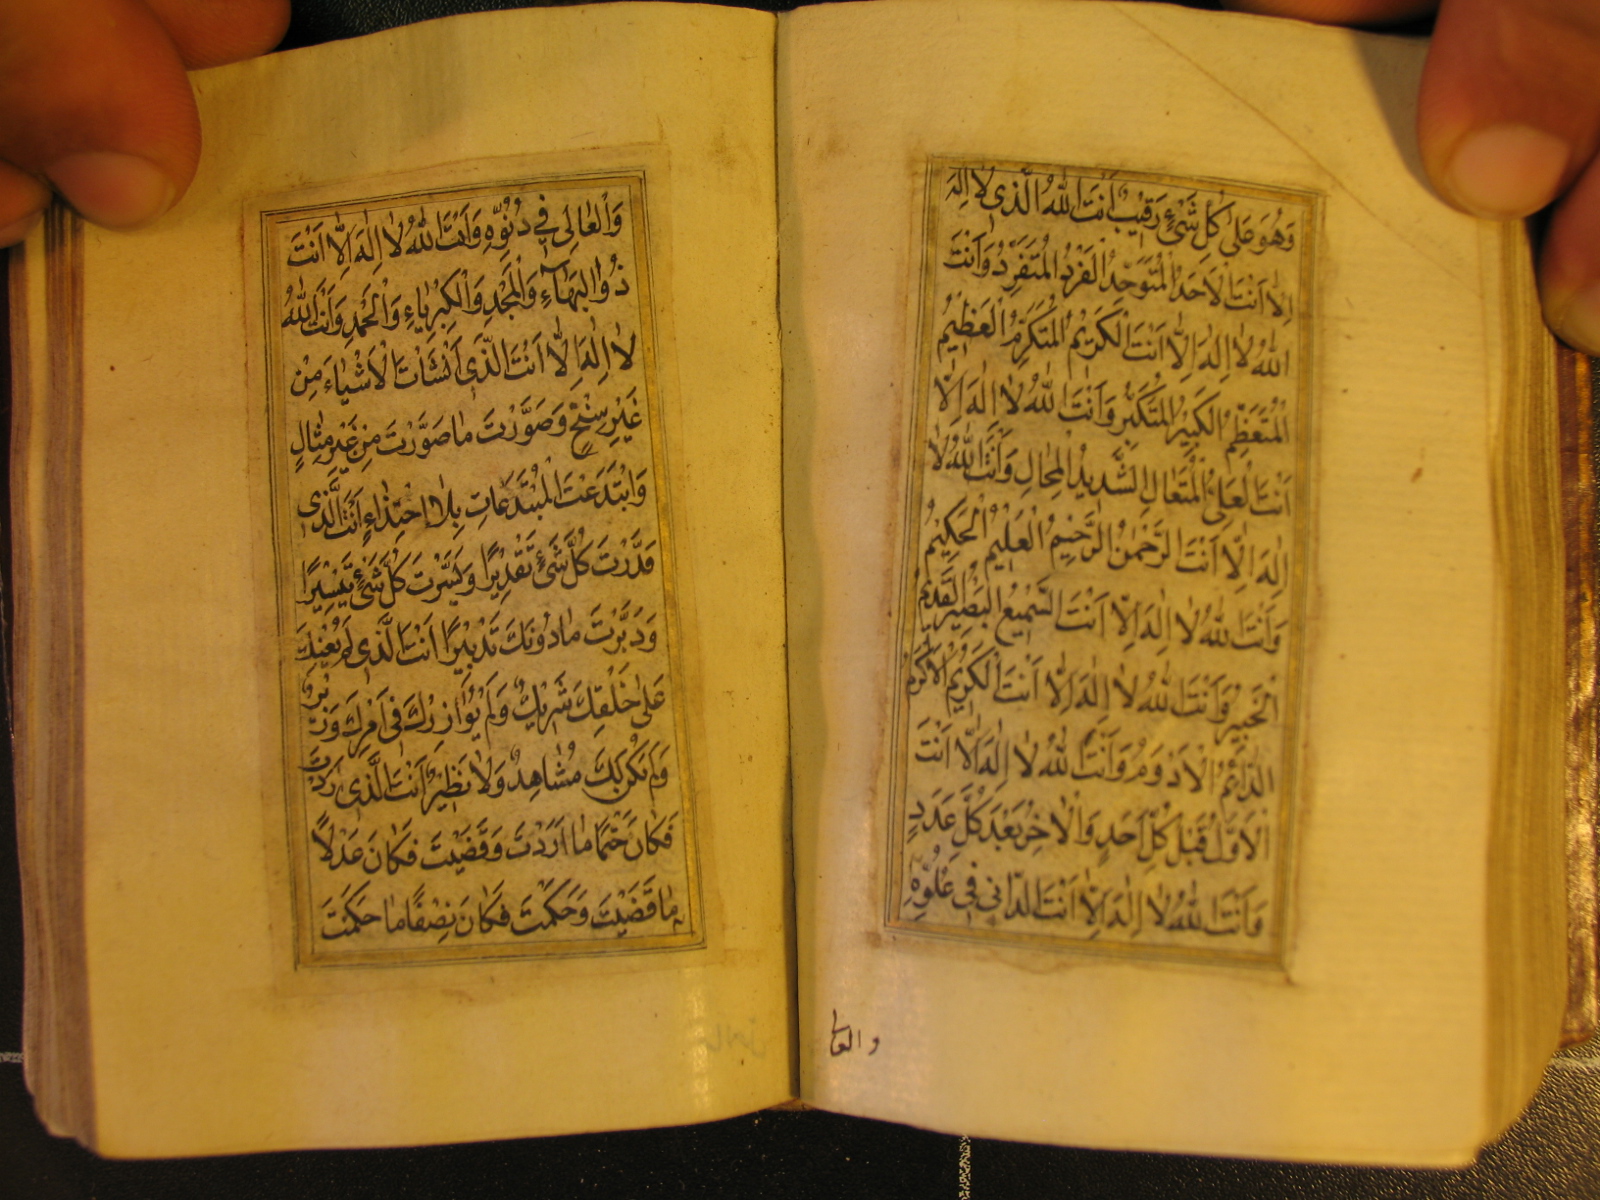 وَهُوَ عَلىٰ كُلِّ شَیْءٍ رَقیٖبٌ اَنْتَ اللّٰهُ الَّذی لَا اِلٰهَ
اِلّٰا اَنْتَ الْاَحَدُ الْمُتَوَحِّدُ الْفَرْدُ الْمُتَفَرِّدُ وَاَنْتَ
اللّٰهُ لٰا اِلٰهَ اِلّٰا اَنْتَ الْكَریٖمُ الْمُتَكَرِّمُ الْعَظیٖمُ
الْمُتَعَظِّمُ الْكَبیٖرُ الْمُتَكَبِّرُ وَاَنْتَ اللّٰهُ لٰا اِلٰهَ اِلّٰا
اَنْتَ الْعَلِیُّ الْمُتَعَالِ الشَّدیٖدُ الْمِحٰالِ وَاَنْتَ اللّٰهُ لٰا
اِلٰهَ اِلّٰا اَنْتَ الرَّحْمٰنُ الرَّحیٖمُ الْعَلیٖمُ الْحَكیٖمُ
وَاَنْتَ اللّٰهُ لٰا اِلٰهَ اِلّٰا اَنْتَ السَّمیٖعُ الْبَصیٖرُ الْقَدیٖمُ
الْخَبیٖرُ وَاَنْتَ اللّٰهُ لٰا اِلٰهَ اِلّٰا اَنْتَ الْكَریٖمُ الْاَكْرَمُ
الدّٰائِمُ الْاَدْوَمُ وَاَنْتَ اللّٰهُ لٰا اِلٰهَ اِلّٰا اَنْتَ
الْاَوَّلُ قَبْلَ كُلِّ اَحَدٍ وَالْاٰخِرُ بَعْدَ كُلِّ عَدَدٍ
وَاَنْتَ اللّٰهُ لٰا اِلٰهَ اِلّٰا اَنْتَ الدّٰانی فی عُلُوِّهِ
و العالی
وَالْعٰالی فی دُنُوِّهِ وَاَنْتَ اللّٰهُ لٰا اِلٰهَ اِلّٰا اَنْتَ
ذُوالْبَهٰآءِ وَالْمَجْدِ وَالْكِبْرِیٰاءِ وَالْحَمْدِ وَاَنْتَ اللّٰهُ
لٰا اِلٰهَ اِلّٰا اَنْتَ الَّذی اَنْشَاْتَ الْاَشْیٰاءَ مِنْ
غَیْرِ سِنْخٍ وَصَوَّرْتَ مٰا صَوَّرْتَ مِنْ غَیْرِ مِثٰالٍ
وَابْتَدَعْتَ الْمُبْتَدَعٰاتِ بِلَا احْتِذٰاءٍ اَنْتَ الَّذی
قَدَّرْتَ كُلَّ شَیْءٍ تَقْدیٖرًا وَیَسَّرْتَ كُلَّ شَیْءٍ تَیْسیٖرًا
وَدَبَّرْتَ مٰادُونَكَ تَدْبیٖرًا اَنْتَ الَّذی لَمْ یُعِنْكَ
عَلىٰ خَلْقِكَ شَریٖكٌ وَلَمْ یُوٰازِرْكَ فی اَمْرِكَ وَزیٖرٌ
وَلَمْ یَكُنْ لَكَ مُشٰاهِدٌ وَلٰا نَظیٖرٌ اَنْتَ الَّذی اَرَدْتَ
فَكٰانَ حَتْمًا مٰا اَرَدْتَ وَقَضَیْتَ فَكٰانَ عَدْلًا
مٰا قَضَیْتَ وَحَكَمْتَ فَكٰانَ نِصْفًا مٰا حَكَمْتَ